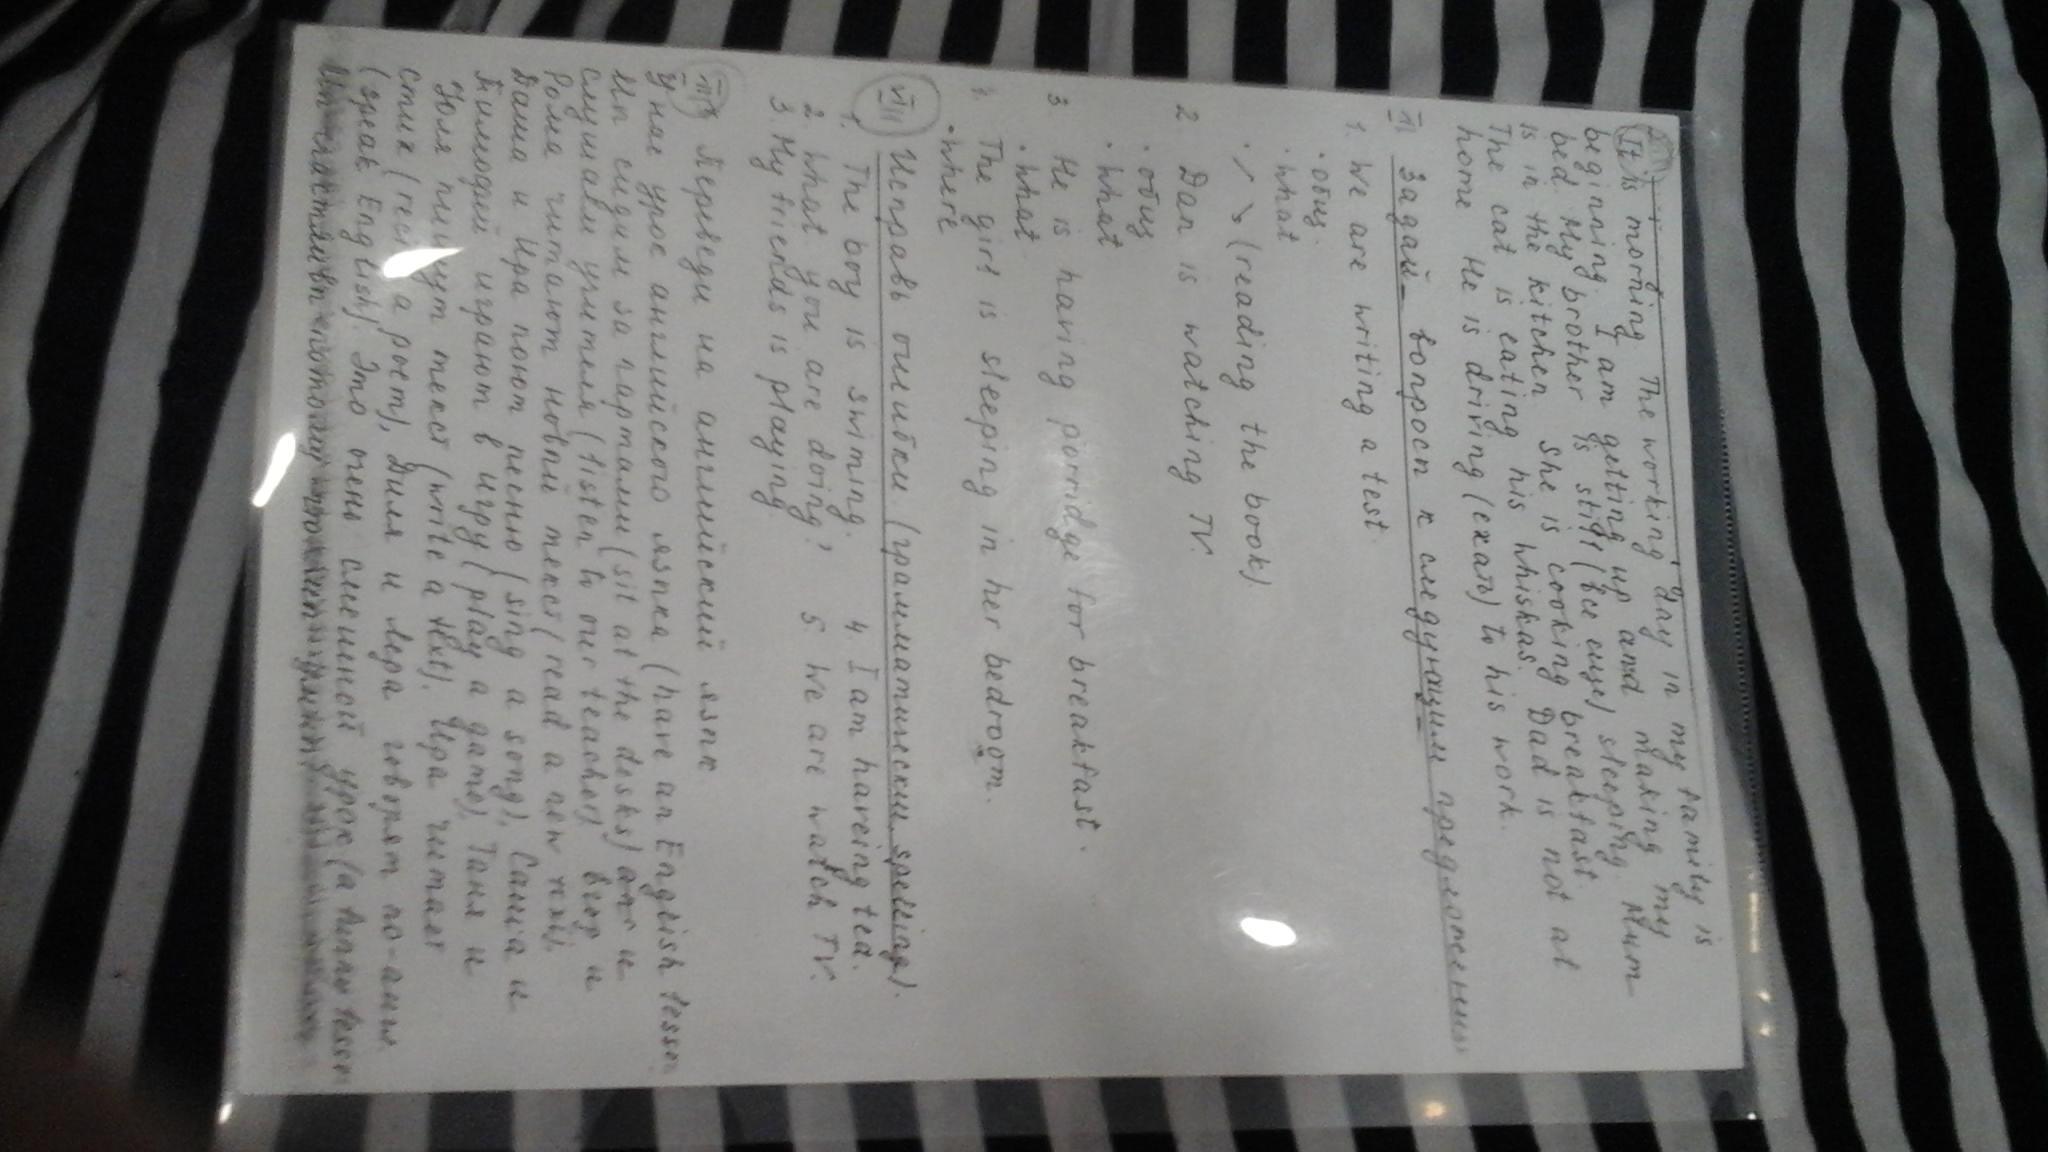 It is morning. The working day in my family is
beginning. I am getting up and making my
bed. My brother is still (все еще) sleeping. Mum
is in the kitchen. She is cooking breakfast.
The cat is eating his whiskas. Dad is not at
home. He is driving (ехать) to his work.
VI Задай вопросы к следующим предложениям
1. We are writing a test.
• общ.
• What
• (reading the book)
2. Dan is watching TV.
• общ
• What
3. He is having porridge for breakfast.
• What
4. The girl is sleeping in her bedroom.
• Where
VII Исправь ошибки (грамматические, spelling).
1. The boy is swiming.
2. What you are doing?
3. My friends is playing.
4. I am haveing tea.
5. We are watch TV.
VIII Переведи на английский язык
У нас урок английского языка (have an English lesson
Мы сидим за партами (sit at the desks) and и
слушаем учителя (listen to our teacher). Влад и
Рома читают новый текст (read a new text).
Даша и Ира поют песню (sing a song). Саша и
Тимофей играют в игру (play a game). Таня и
Юля пишут текст (write a text). Ира читает
стих (a poem), Диля и Лера говорят по-англ.
(speak English). Это очень смешной урок (a funny lesson